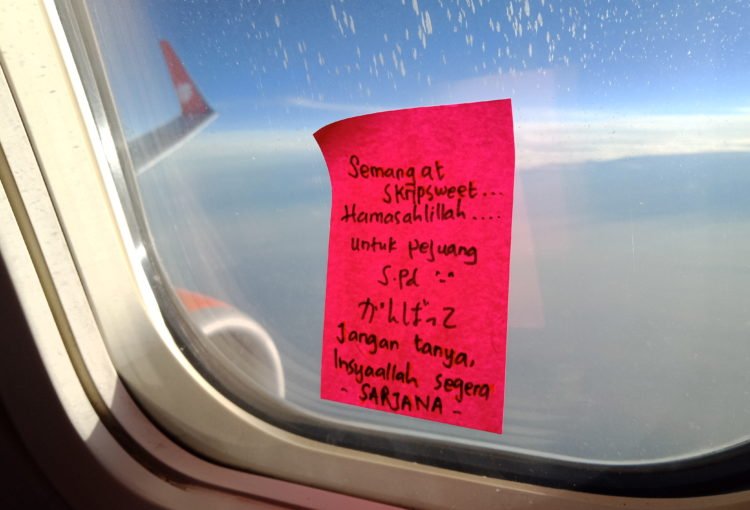 Semangat
Skripsweet...
Hamasahlillah....
untuk pejuang
S.Pd
がんばって
Jangan tanya,
Insyaallah segera
- SARJANA -